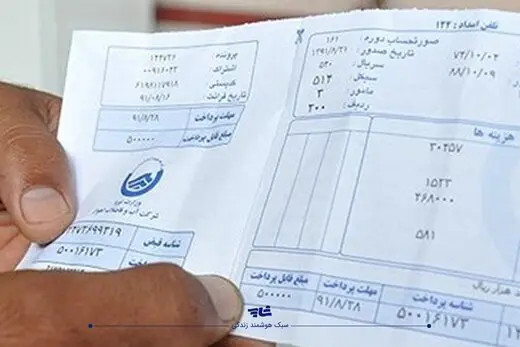 تلفن امداد : ۱۲۲
صورتحساب دوره : ۱۶۱
تاریخ صدور : ۱۳۹۱/۸/۲۱
سریال : ۵۳۰
سیکل : ۵۱۳
مامور : ۳
ردیف : ۳۰۰
۷۲/۱۰/۰۲
۸۸/۱۰/۰۹
هزینه ها
۳۰۴۵۷
۱۵۲۳
۴۶۸۰۰۰
۵۸۱
هزار ریال
شناسه پرداخت
مهلت پرداخت
مبلغ قابل پرداخت
۵۰۰۱۶۱۷۳
۹۱/۸/۲۸
۵۰۰۰۰۰
پرونده : ۱۴۴۷۲۶
اشتراک : ۰۰۹۱۶۰۴۳
کدپستی : ۶۱۹۸۱۱۷۹۱۸
تاریخ قرائت : ۹۱/۰۸/۱۶
مهلت پرداخت
۹۱/۸/۲۸
مبلغ قابل پرداخت
۵۰۰۰۰۰
وزارت نیرو
شرکت آب و فاضلاب اهواز
شناسه قبض
شناسه پرداخت
۵۰۰۱۶۱۷۳
سبک هوشمند زندگی